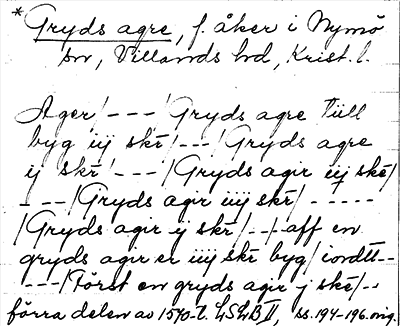 * Gryds agre, f. åker i Nymö
sn, Villands hd, Krist. l.
Ager/---/Gryds agre tüll
byg iij skr̄/---/Gryds agre
ij skr̄/---/Gryds agir iij skr̄/
---/Gryds agir iiij skr̄/-----
/Gryds agir ij skr̄/--/aff en
gryds agir er iiij skr̄ byg/iordtt--
---/Först en gryds agir j skr̄/--
förra delen av 1570-t. LSLB II, ss. 194-196. orig.